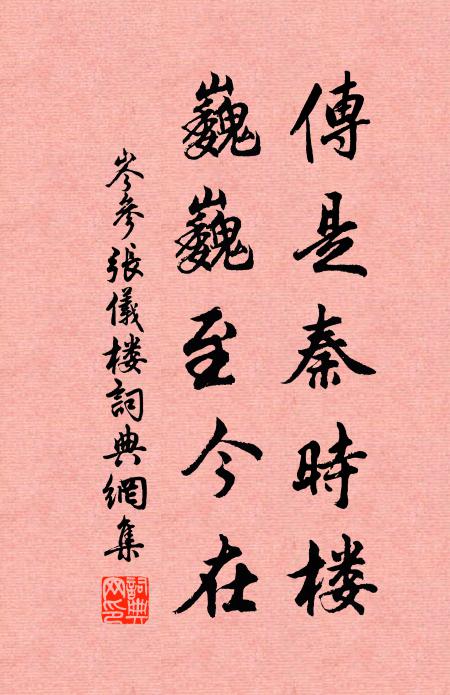 傳是秦時楼
巍巍至今在
岑參張儀楼詞典網集
詞典网印